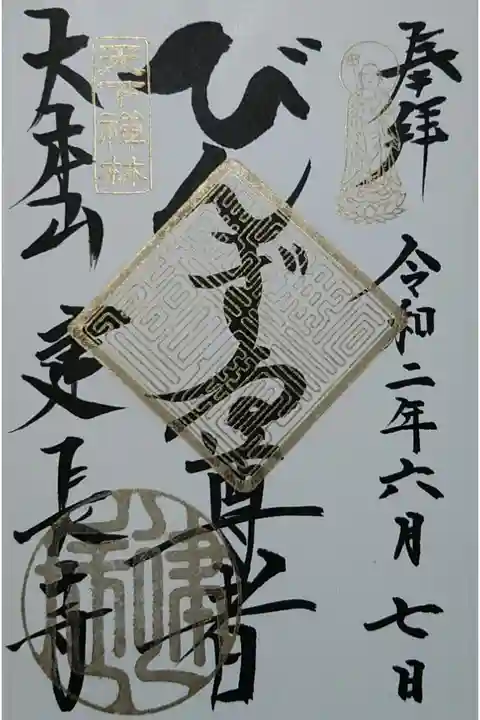 奉拝
令和二年六月七日
びんずる尊者
天下禅林
大本山 建長寺